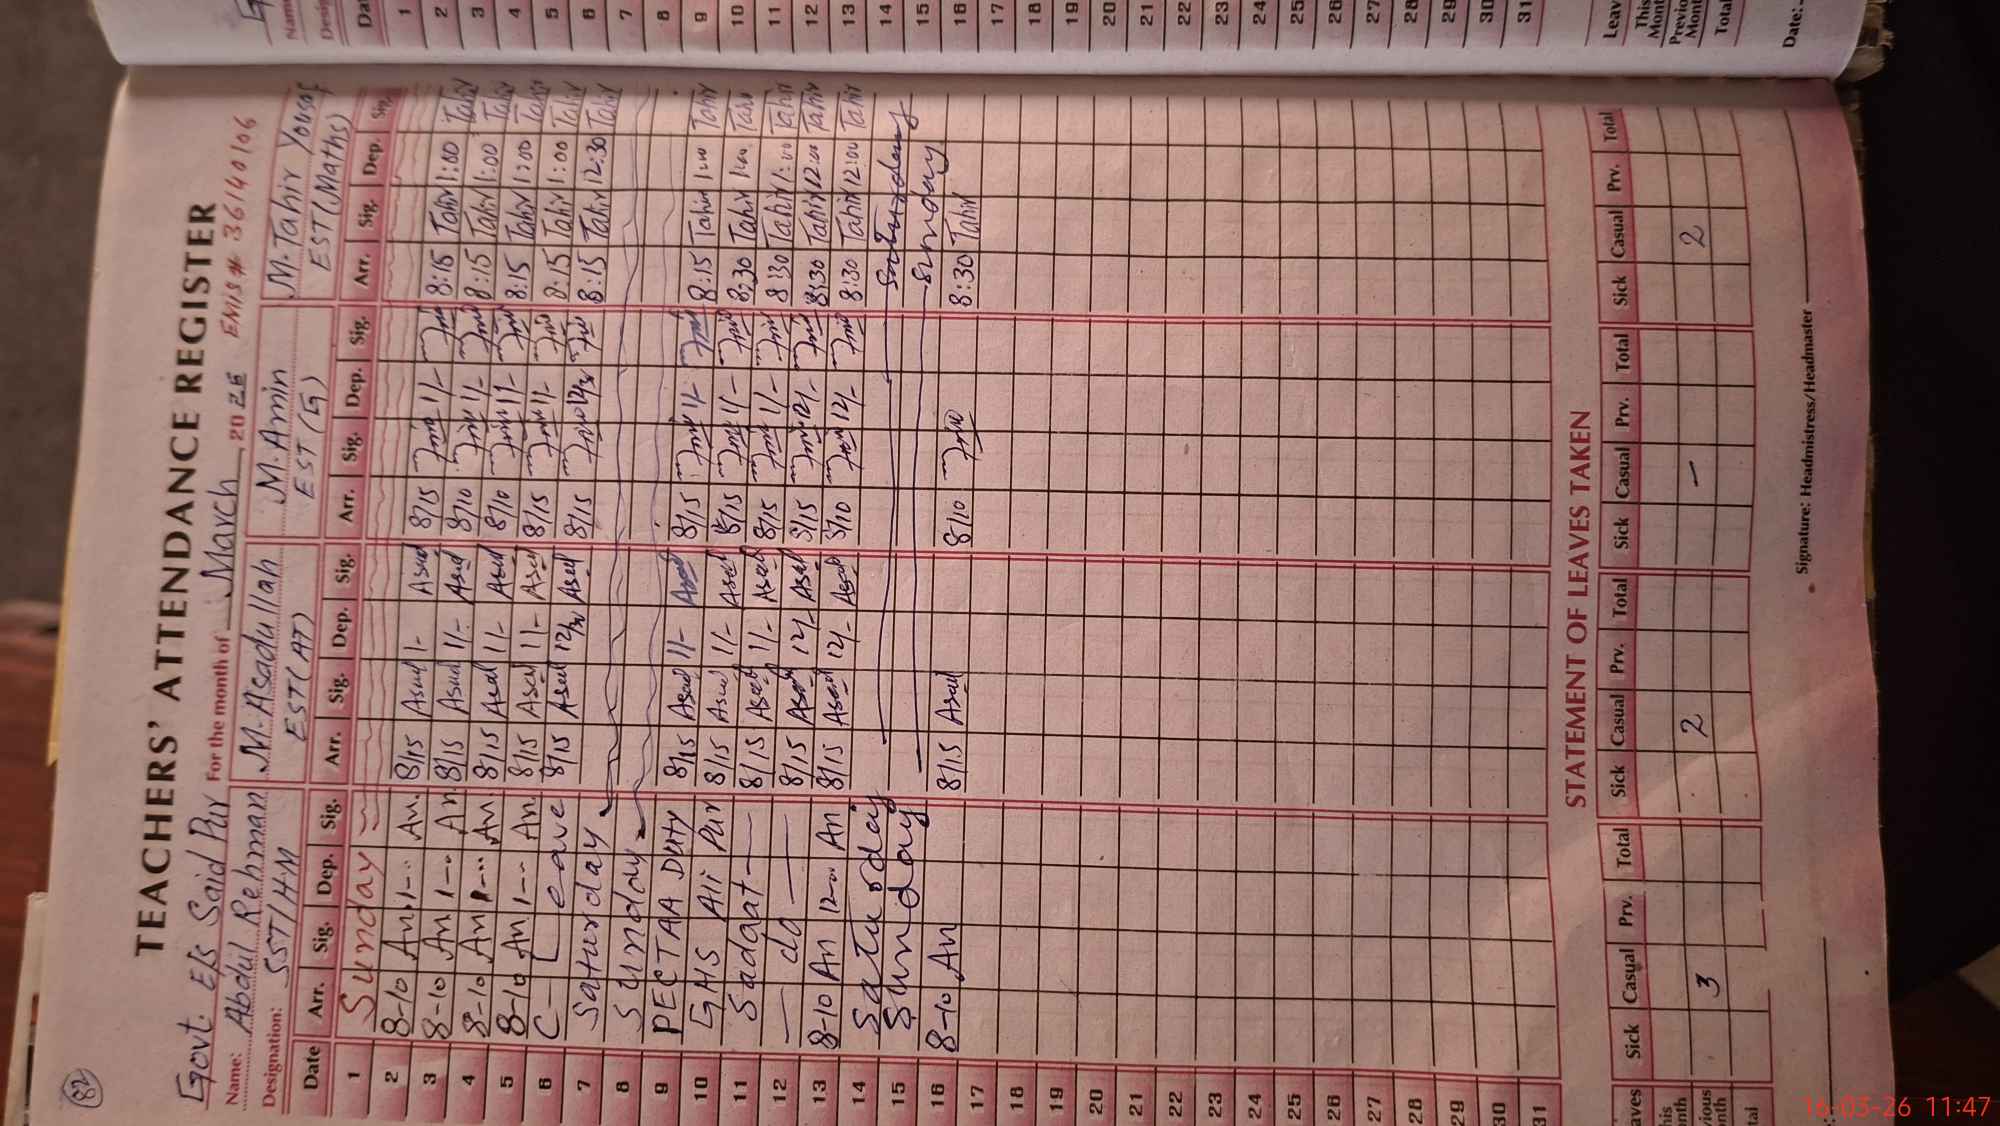 82
TEACHERS' ATTENDANCE REGISTER
Govt. E/s Said Pur For the month of March 2026 EMIS # 36140106
Name: Abdul Rehman M. Asadullah M. Amin M. Tahir Yousaf
Designation: SST/H.M EST (AT) EST (G) EST (Maths)
Date Arr. Sig. Dep. Sig. Arr. Sig. Dep. Sig. Arr. Sig. Dep. Sig. Arr. Sig. Dep. Sig.
1 Sunday
2 8-10 An 1-.. An. 8/15 Asad 1- Asad 8/15 1/- 8:15 Tahir 1:00 Tahir
3 8-10 An 1-.. An 8/15 Asad 1/- Asad 8/10 1/- 8:15 Tahir 1:00 Tahir
4 8-10 An 1-.. An. 8/15 Asad 1/- Asad 8/10 1/- 8:15 Tahir 1:00 Tahir
5 8-10 An 1-.. An 8/15 Asad 1/- Asad 8/15 1/- 8:15 Tahir 1:00 Tahir
6 C- Leave 8/15 Asad 12/30 Asad 8/15 12/30 8:15 Tahir 12:30 Tahir
7 Saturday
8 Sunday
9 PECTAA Duty 8/15 Asad 1/- Asad 8/15 1/- 8:15 Tahir 1:00 Tahir
10 GHS Ali Pur 8/15 Asad 1/- Asad 8/15 1/- 8:30 Tahir 1:00 Tahir
11 Sadaat 8/15 Asad 1/- Asad 8/15 1/- 8:30 Tahir 1:00 Tahir
12 — do — 8/15 Asad 12/- Asad 8/15 12/- 8:30 Tahir 12:00 Tahir
13 8-10 An 12-00 An 8/15 Asad 12/- Asad 8/10 12/- 8:30 Tahir 12:00 Tahir
14 Saturday Saturday
15 Sunday Sunday
16 8-10 An 8/15 Asad 8/10 8:30 Tahir
17
18
19
20
21
22
23
24
25
26
27
28
29
30
31
STATEMENT OF LEAVES TAKEN
aves Sick Casual Prv. Total Sick Casual Prv. Total Sick Casual Prv. Total Sick Casual Prv. Total
his onth 2 - 2
vious onth 3
tal
Signature: Headmistress/Headmaster
Name
Desig
Dat
1
2
3
4
5
6
7
8
9
10
11
12
13
14
15
16
17
18
19
20
21
22
23
24
25
26
27
28
29
30
31
Leav
This Mont
Previo Mont
Total
Date:
16-03-26 11:47